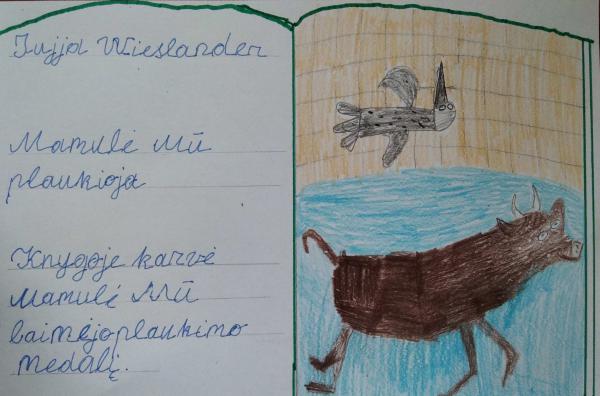 Jujja Wieslander
Mamulė Mū
plaukioja
Knygoje karvė
Mamulė Mū
laimėjoplaukimo
medalį.